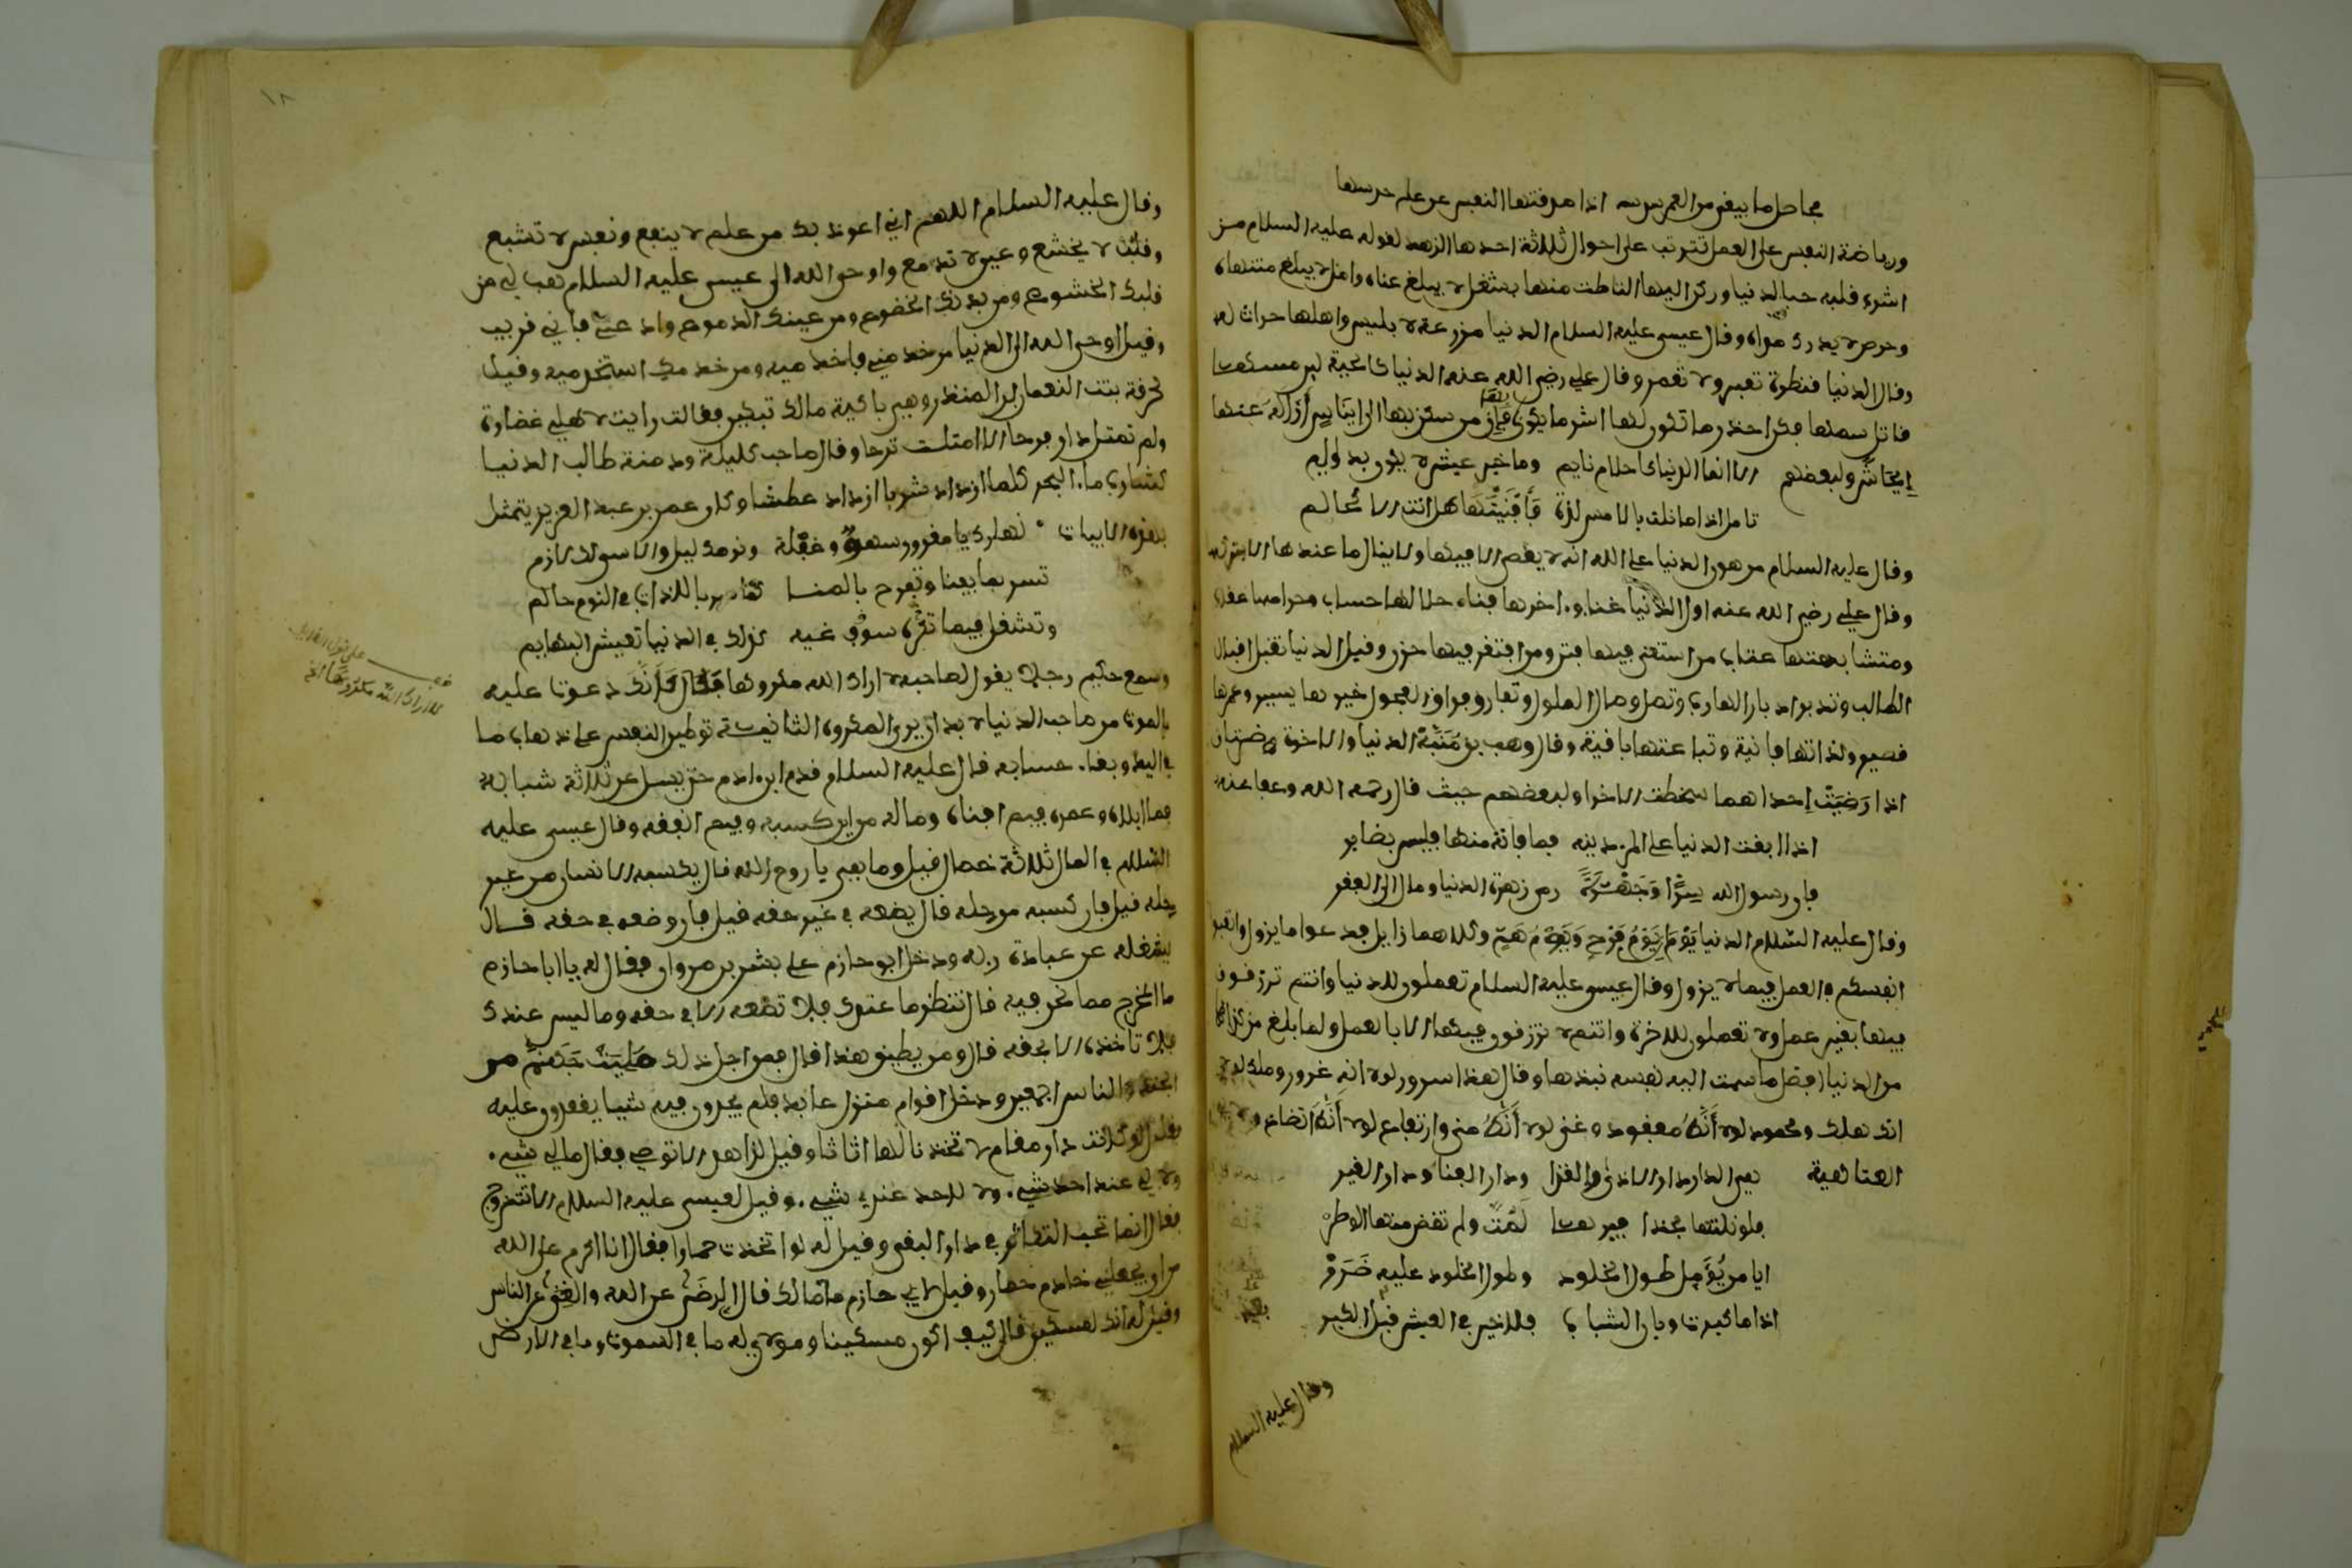 ورياضة النفس على العمل تترتب على احوال ثلاثة احدها الزهد لقوله عليه السلام من
اشرب قلبه حب الدنيا وركن اليها التاطت منها بشغل لا يبلغ عناه وامل لا يبلغ منتهاه
وحرص لا يدرك مداه وقال عيسى عليه السلام الدنيا مزرعة بليس واهلها حراث له
وقال الدنيا قنطرة تعبر ولا تعمر وقال علي رضي الله عنه الدنيا كالحية لين مسها
قاتل سمها فكن احذر ما تكون لها اشر ما يكون فإن من سكن بها الى ايناس أزاله عنها
إيحاش ولبعضهم الا انما الدنيا كاحلام نايم وما خير عيش لا يكون بدايم
تامل اذا ما نلت بالامس لذة فأفنيتها هل انت الا كحالم
وقال عليه السلام من هوان الدنيا على الله انه لا يعصى الا فيها ولا ينال ما عندها الا بتركه
وقال علي رضي الله عنه اول الدنيا عناء واخرها فناء حلالها حساب وحرامها عقاب
ومتشابهها عتاب من استغنى فيها فتن ومن افتقر فيها حزن وقيل الدنيا تقبل اقبال
الطالب وتدبر ادبار الهارب وتصل وصال الملول وتفارق فراق العجول خيرها يسير وعمرها
قصير ولذاتها فانية وتباعتها باقية وقال وهب بن منبه الدنيا والاخرة ضرتان
اذا رضيت إحداهما سخطت الاخرى ولبعضهم حيث قال رحمه الله وعفا عنه
اذا ابقت الدنيا على المرء دينه فما فاته منها فليس بضاير
وقال عليه السلام الدنيا يومان يوم فرح ويوم هم وكلاهما زايل فدعوا ما يزول واتعبوا
انفسكم في العمل فيما لا يزول وقال عيسى عليه السلام تعملون للدنيا وانتم ترزقون
فيها بغير عمل ولا تعملون للاخرة وانتم لا ترزقون فيها الا بالعمل ولما بلغ مزدك
من الدنيا افضل ما سمت اليه نفسه نبذها وقال هذا سرور لولا انه غرور وملك لولا
انه هلك ومحمود لولا أنه مفقود وغنى لولا أنه منى وارتفاع لولا أنه اتضاع
العتاهية هي الدار دار الاذى والقذا ودار الفنا ودار الغير
فلو نلتها بحذافيرها لمت ولم تقض منها الوطر
ايا من يؤمل طول الخلود وطول الخلود عليه ضرر
اذا ما كبرت وبان الشباب فلا خير في العيش قبل الكبر
وقال عليه السلام
١٨
وقال عليه السلام اللهم اني اعوذ بك من علم لا ينفع ونفس لا تشبع
وقلب لا يخشع وعين لا تدمع واوحى الله الى عيسى عليه السلام هب لي من
قلبك الخشوع ومن بدنك الخضوع ومن عينك الدموع وادعني فاني قريب
وقيل اوحى الله الى الدنيا من خدمني فاخدميه ومن خدمك استخدميه وقيل
لحرقة بنت النعمان ابن المنذر وهي باكية مالك تبكين فقالت رايت لاهلي غضارة
ولم تمتل دار فرحا الا امتلت ترحا وقال صاحب كليلة ودمنة طالب الدنيا
كشارب ماء البحر كلما ازداد شربا ازداد عطشا وكان عمر بن عبد العزيز يتمثل
بهذه الابيات نهارك يا مغرور سهو وغفلة ونومك ليل والاسى لك لازم
تسر بما يفنا وتفرح بالمنا كما سر باللذات في النوم حالم
وتشغل فيما تكره سوف غبه كذلك في الدنيا تعيش البهايم
وسمع حكيم رجلا يقول لصاحبه لا اراك الله مكروها فقال كأنك دعوت عليه
بالموت من صاحب الدنيا لا بد ان يرى المكروه الثانية توطين النفس على ذهاب ما
في اليد وبقاء حسابه قال عليه السلام لا تزول قدم ابن ادم حتى يسل عن ثلاثة شبابه
فيما ابلاه وعمره فيم افناه وماله من اين كسبه وفيم انفقه وقال عيسى عليه
السلام في المال ثلاثة خصال قيل وما هي يا روح الله قال يكسبه الانسان من غير
حله قيل فان كسبه من حله قال يضعه في غير حقه قيل فان وضعه في حقه قال
يشغله عن عبادة ربه ودخل ابو حازم على بشر بن مروان فقال له يا ابا حازم
ما المخرج مما نحن فيه قال تنظر ما عندك فلا تضعه الا في حقه وما ليس عندك
فلا تاخذه الا بحقه قال ومن يطيق هذا قال فمن اجل ذلك مليت جهنم من
الجنة والناس اجمعين ودخل اقوام منزل عابد فلم يجدوا فيه شيا يقعدون عليه
فقال لو كانت دار مقام لاتخذنا لها اثاثا وقيل لزاهد الا توصي فقال مالي شيء
ولا لي عند احد شيء ولا لاحد عندي شيء وقيل لعيسى عليه السلام الا تتزوج
فقال انما نحب التكاثر في دار البقى وقيل له لو اتخذت حمارا فقال انا اكرم على الله
من ان يجعلني خادم حمار وقيل لابي حازم ما مالك قال الرضى عن الله والغنى عن الناس
وقيل له انك لمسكين قال كيف اكون مسكينا ومولاي له ما في السموات وما في الارض